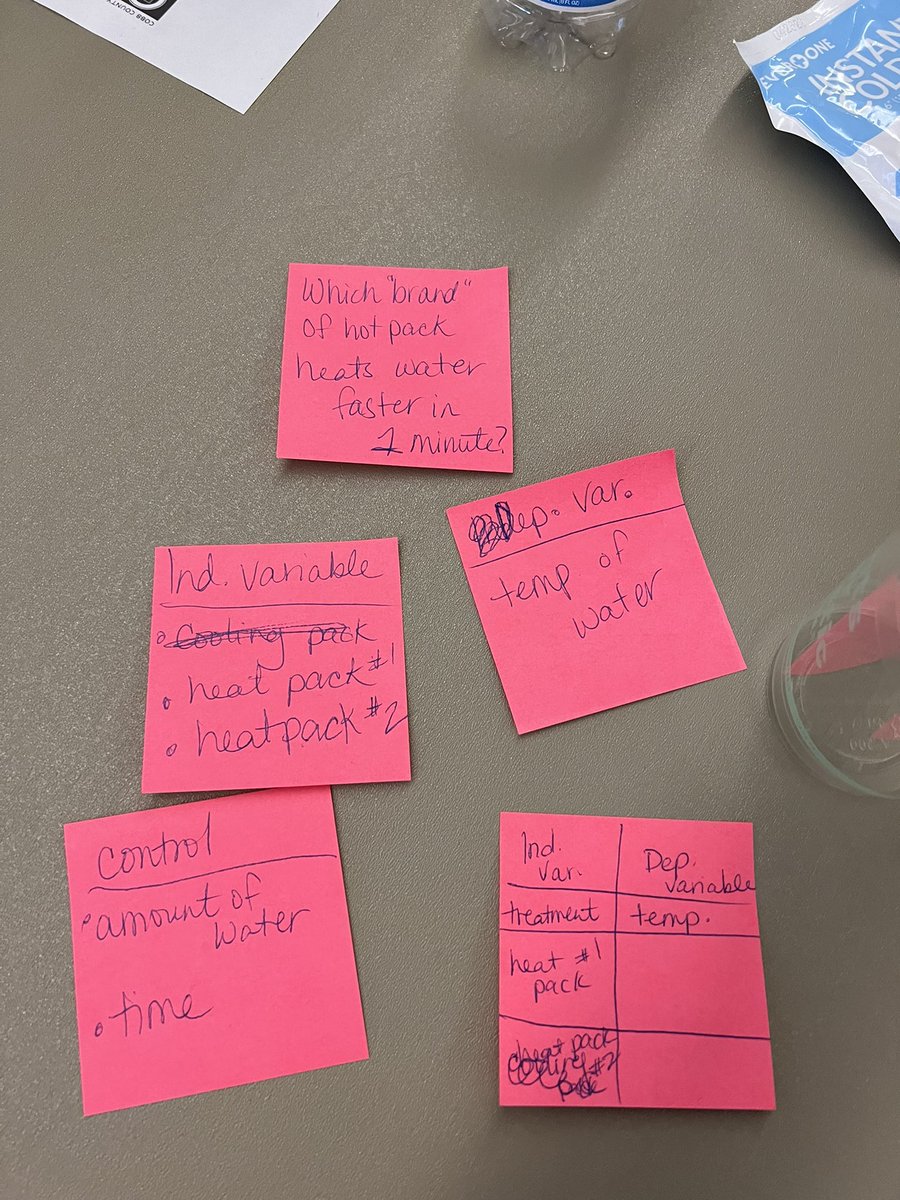 COBB COUNTY
FL OZ)
EVER ONE
INSTAN
COLD
Which "brand"
of hot pack
heats water
faster in
1 minute?
Dep. Var.
temp of
water
Ind. Variable
• Cooling pack
• heat pack #1
• heat pack #2
Control
• amount of
water
• time
Ind. Var. Dep. Variable
treatment temp.
heat #1
pack
heat pack
#2